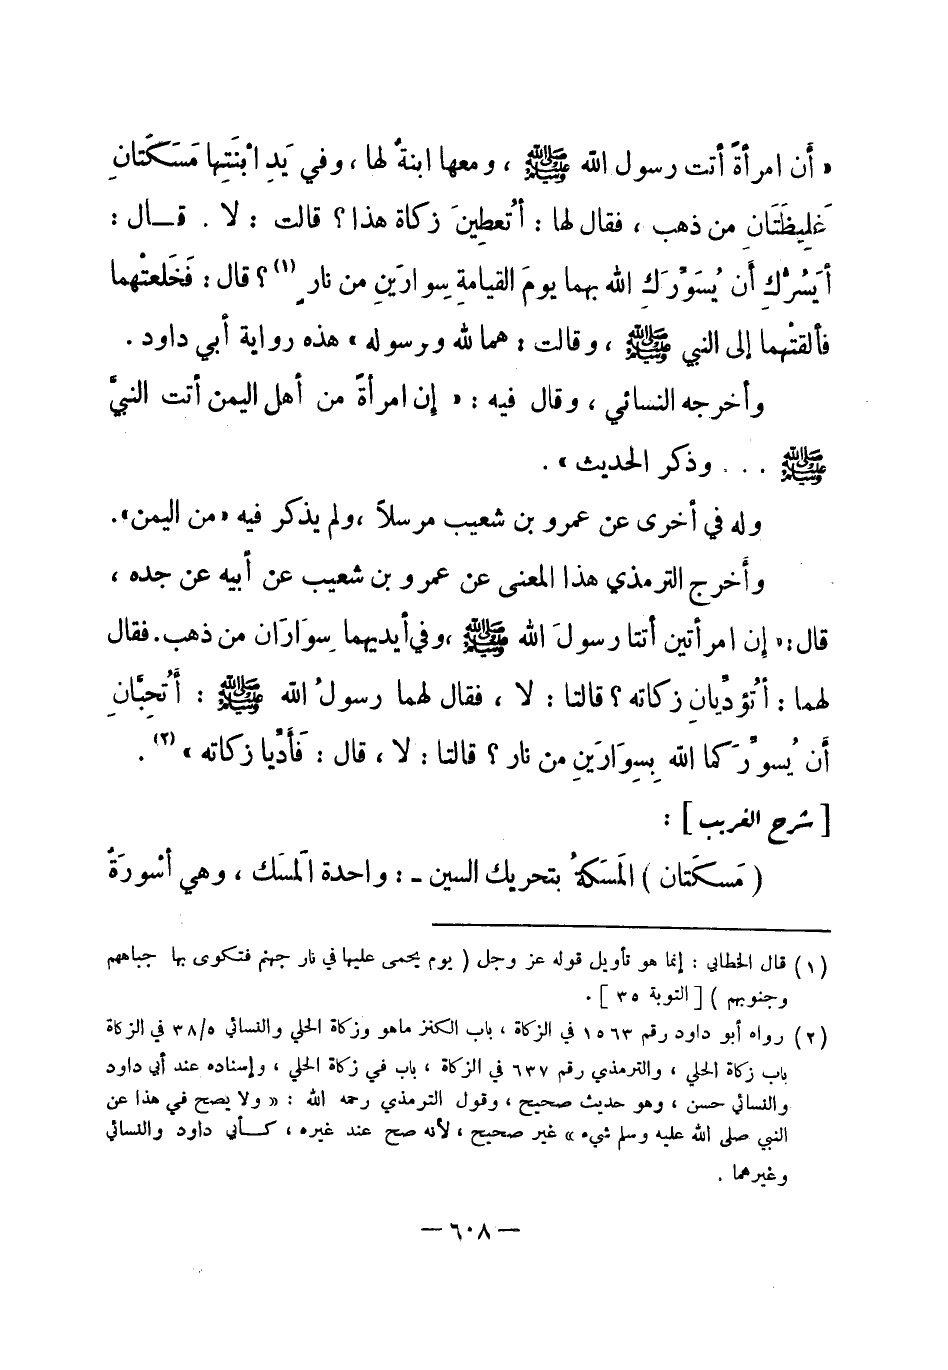 « أَن امرأَةً أتت رسول الله ﷺ ، ومعها ابنةٌ لها ، وفي يَدِ ابْنَتِها مَسَكَتَانِ
غَلِيظَتَانِ من ذهب ، فقال لها : أتُعطِينَ زكاة هذا ؟ قالت : لا . قــال :
أيَسُرُّكِ أَن يُسَوِّرَكِ الله بهما يومَ القيامةِ سِوارَينِ من نارٍ (١) ؟ قال : فَخَلعتْهما
فألقتْهما إلى النبي ﷺ ، وقالت : هما لله ورسوله » هذه رواية أبي داود .
وأخرجه النسائي ، وقال فيه : « إن امرأةً من أهل اليمن أتت النبيَّ
ﷺ . . . وذكر الحديث » .
وله في أخرى عن عمرو بن شعيب مرسلاً ،ولم يذكر فيه «من اليمن».
وأَخرج الترمذي هذا المعنى عن عمرو بن شعيب عن أبيه عن جده ،
قال:« إن امرأتين أتتا رسولَ الله ﷺ ،وفي أيديهما سِوَارَان من ذهب. فقال
لهما : أتُؤدِّيانِ زكاته ؟ قالتا : لا ، فقال لهما رسولُ الله ﷺ : أَتُحِبَّانِ
أَن يُسوِّرَكما الله بِسِوَارَينِ من نار ؟ قالتا : لا ، قال : فَأَدِّيا زكاته » (٢) .
[ شرح الغريب ] :
( مَسكَتان ) المَسَكةُ بتحريك السين ـ : واحدة المَسَك ، وهي أسْورَةُ
(١) قال الخطابي : إنما هو تأويل قوله عز وجل ( يوم يحمى عليها في نار جهنم فتكوى بها جباههم
وجنوبهم ) [ التوبة ٣٥ ] .
(٢) رواه أبو داود رقم ١٥٦٣ في الزكاة ، باب الكنز ماهو وزكاة الحلي والنسائي ٣٨/٥ في الزكاة
باب زكاة الحلي ، والترمذي رقم ٦٣٧ في الزكاة ، باب في زكاة الحلي ، وإسناده عند أبي داود
والنسائي حسن ، وهو حديث صحيح ، وقول الترمذي رحمه الله : « ولا يصح في هذا عن
النبي صلى الله عليه وسلم شيء » غير صحيح ، لأنه صح عند غيره ، كـأبي داود والنسائي
وغيرهما .
— ٦٠٨ —